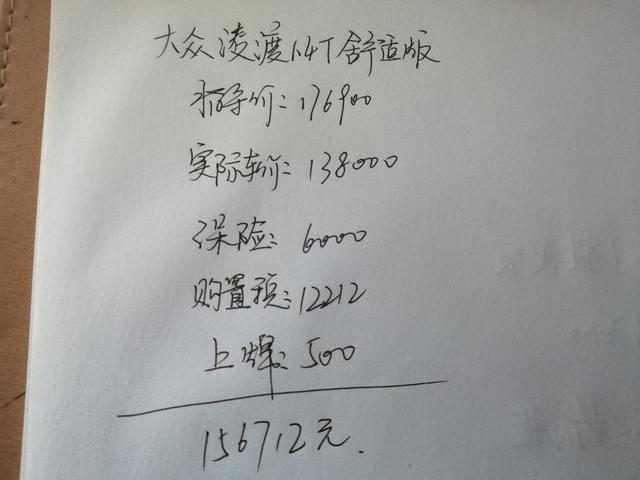 大众凌渡1.4T舒适版
指导价：176900
实际车价：138000
保险：6000
购置税：12212
上牌：500
156712元.